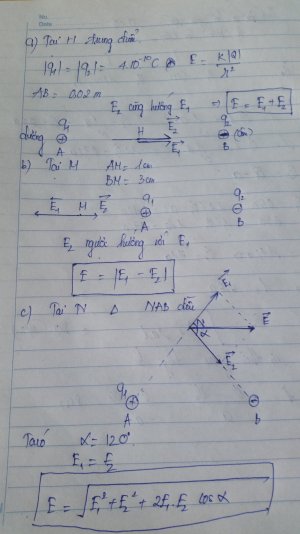 No.
Date
a) Tại H trung điểm
|q₁| = |q₂| = 4.10⁻¹⁰ C E = k|Q| / r²
AB = 0,02 m
E₂ cùng hướng E₁ ⇒ E = E₁ + E₂
q₁ H E₂ q₂
dương ⊕ ⊖ (âm)
A E₁ B
b) Tại M AM = 1cm
BM = 3cm
E₁ M E₂ q₁ q₂
⊕ ⊖
A B
E₂ ngược hướng với E₁
E = |E₁ - E₂|
c) Tại N Δ NAB đều
E₁
E
α
E₂
q₁
⊕ ⊖
A B
Ta có α = 120°
E₁ = E₂
E = √E₁² + E₂² + 2E₁.E₂ cos α